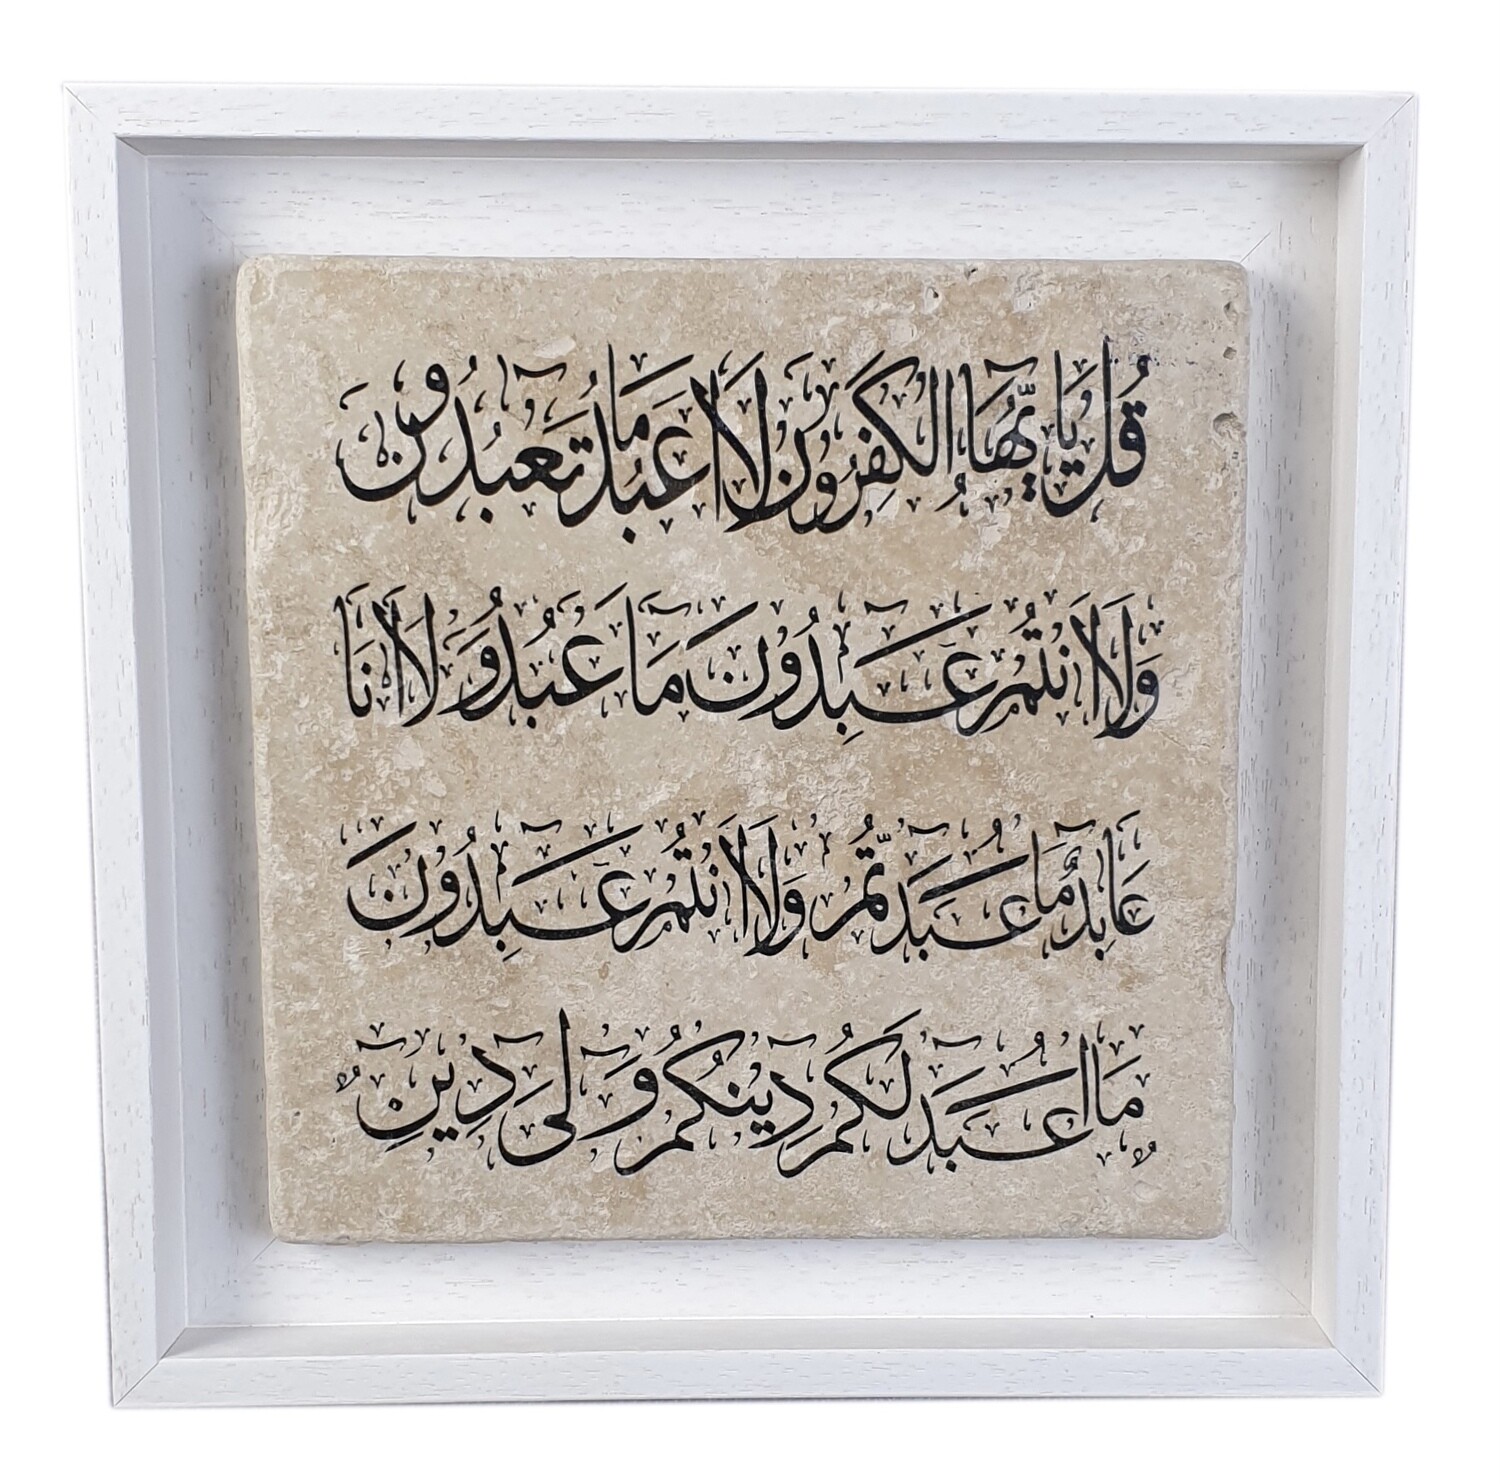 قُلْ يَا يُّهَا الْكٰفِرُونَ لَا اَعْبُدُ مَا تَعْبُدُونَ
وَلَا اَنْتُمْ عٰبِدُونَ مَا عَبُدُ وَلَا اَنَا
عَابِدٌ مَا عَبَدْتُّمْ وَلَا اَنْتُمْ عٰبِدُونَ
مَا اَعْبُدُ لَكُمْ دِينُكُمْ وَلِىَ دِينِ